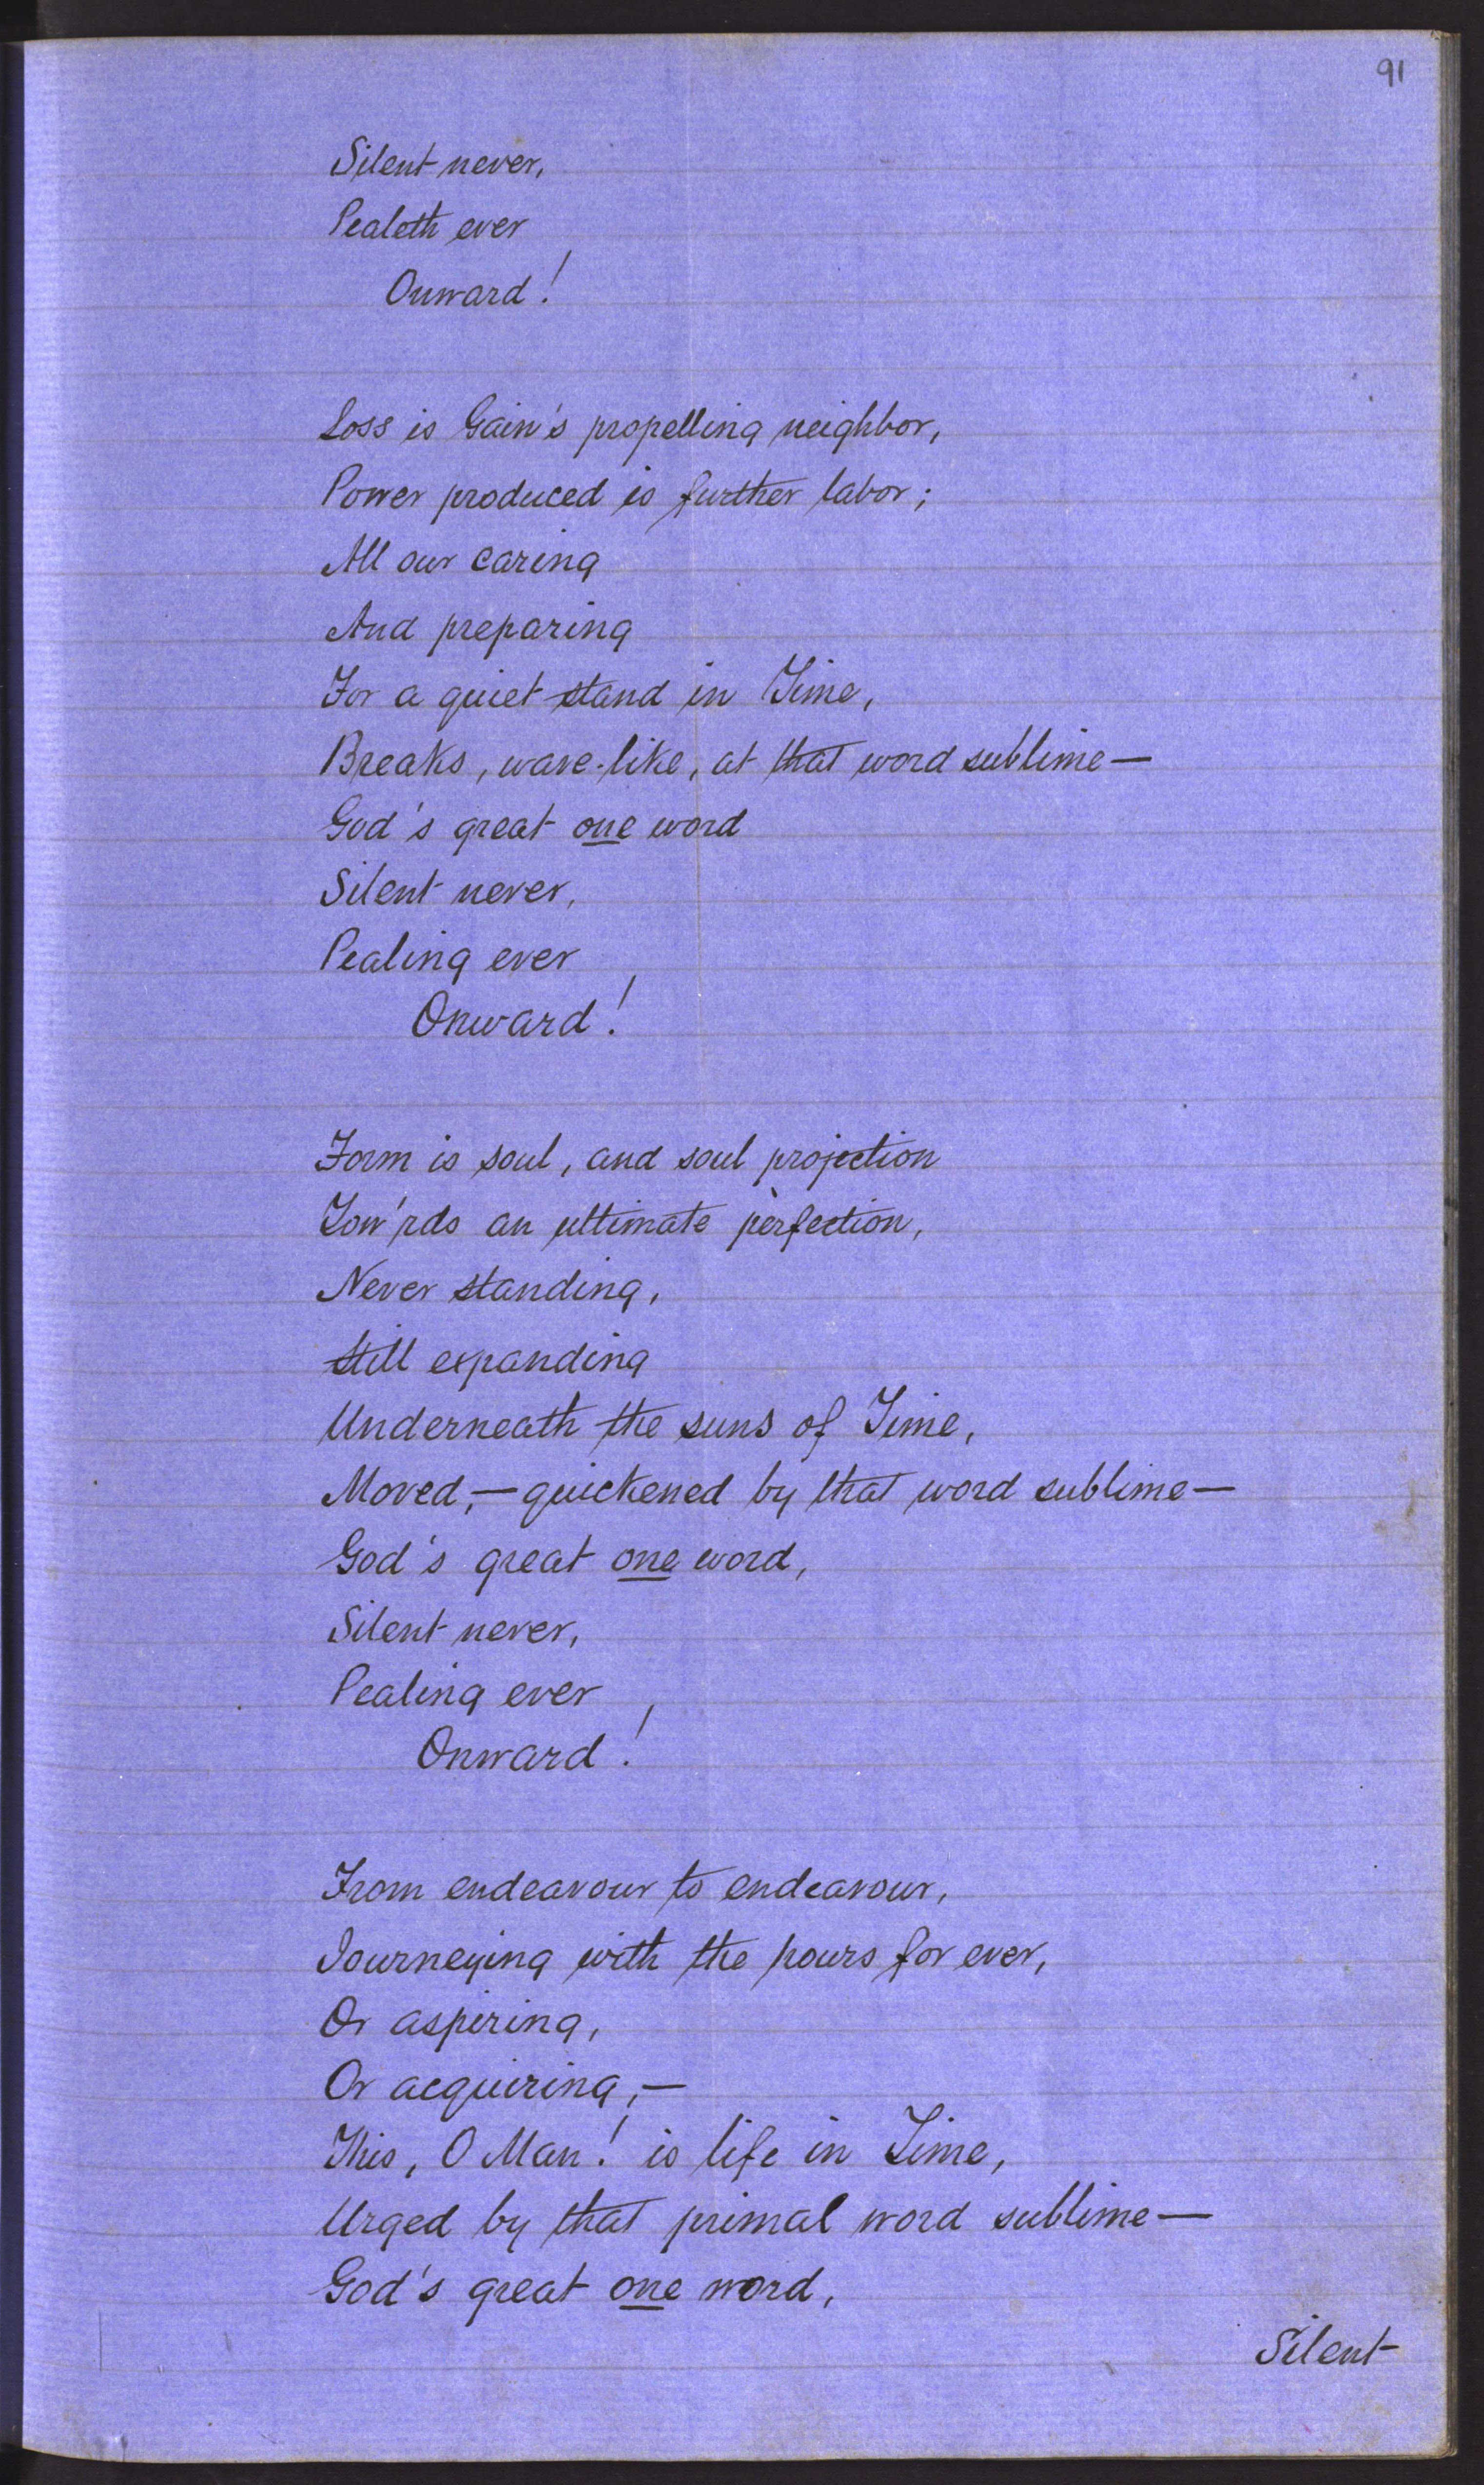 91
Silent never,
Pealeth ever
Onward!
Loss is Gain's propelling neighbor,
Power produced is further labor;
All our caring
And preparing
For a quiet stand in Time,
Breaks, wave-like, at that word sublime—
God's great one word
Silent never,
Pealing ever
Onward!
Form is soul, and soul projection
Tow'rds an ultimate perfection,
Never standing,
Still expanding
Underneath the suns of Time,
Moved,—quickened by that word sublime—
God's great one word,
Silent never,
Pealing ever
Onward!
From endeavour to endeavour,
Journeying with the hours for ever,
Or aspiring,
Or acquiring,—
This, O Man! is life in Time,
Urged by that primal word sublime—
God's great one word,
Silent